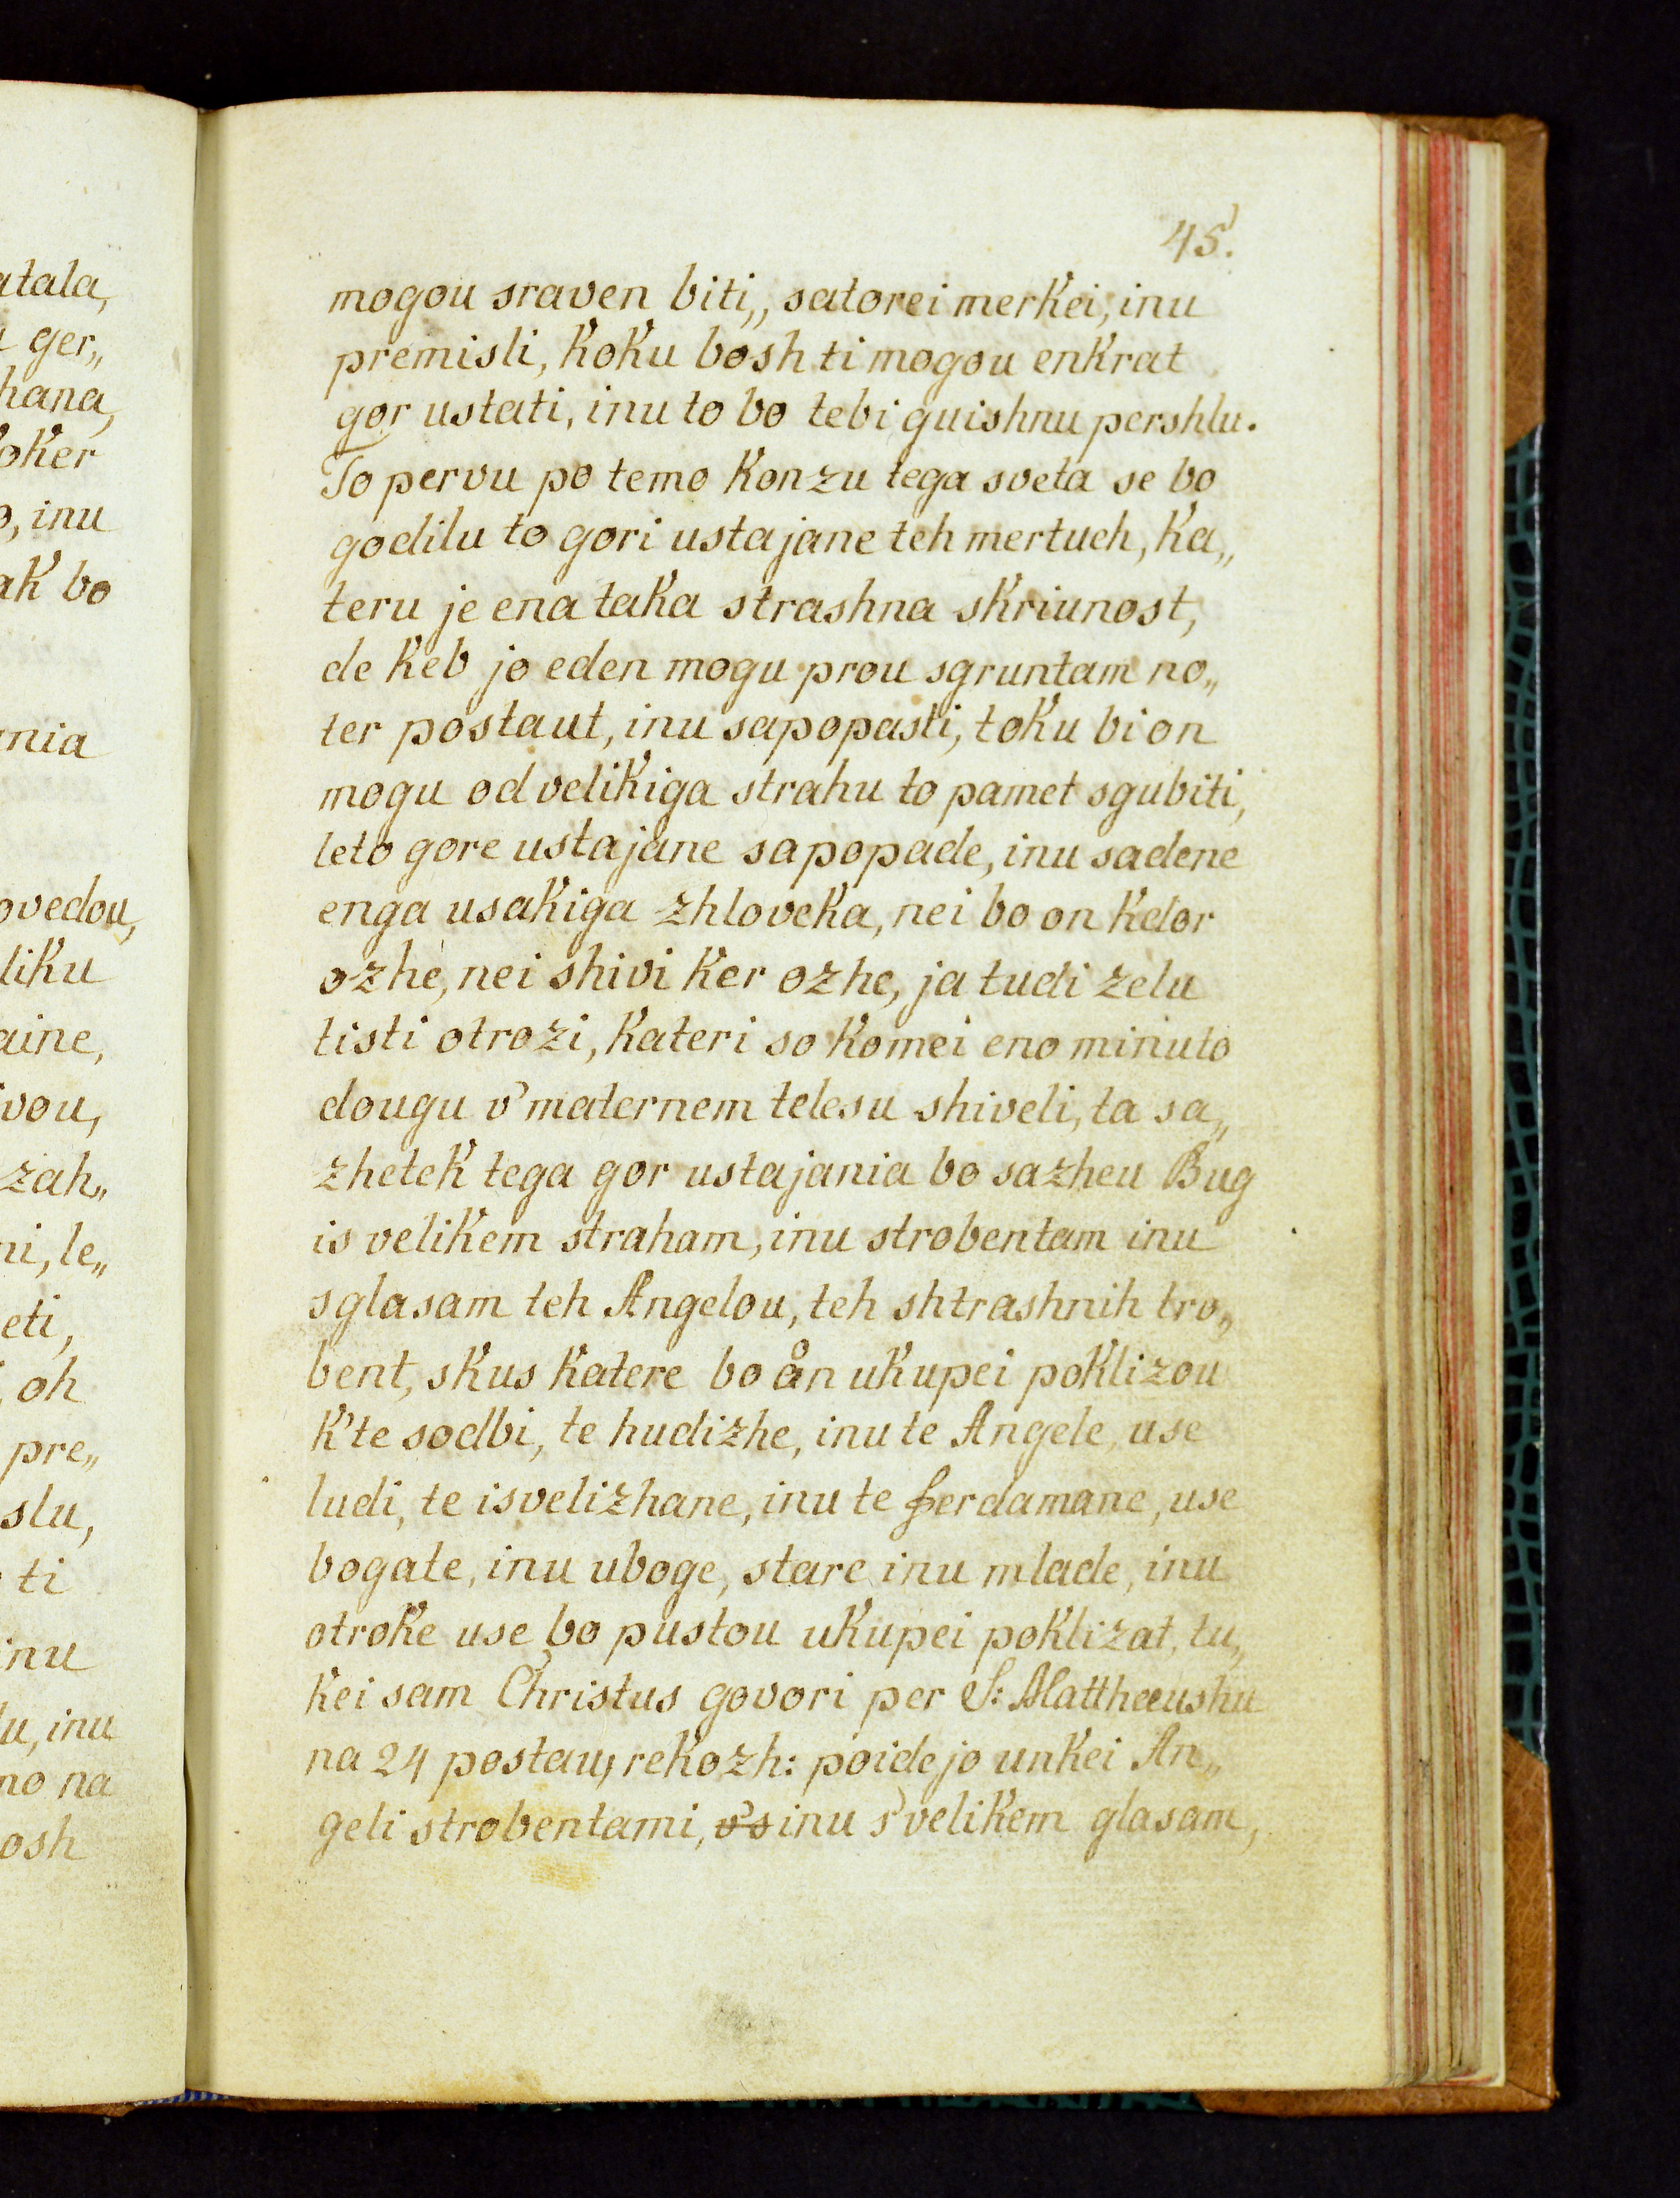 atala,
ger,,
hana,
oker
o, inu
ak bo
nia
ovedou,
liku
aine,
vou,
zah,,
ni, le,,
eti,
oh
pre,,
slu,
ti
inu
lu, inu
no na
osh
45.
mogou sraven biti,, satorei merkei, inu
premisli, koku bosh ti mogou enkrat
gor ustati, inu to bo tebi guishnu pershlu.
To pervu po temo konzu tega sveta se bo
godilu to gori ustajane teh mertueh, ka,,
teru je ena taka strashna skriunost,
de keb jo eden mogu prou sgruntam no,,
ter postaut, inu sapopasti, toku bi on
mogu od velikiga strahu to pamet sgubiti,
leto gore ustajane sapopade, inu sadene
enga usakiga zhloveka, nei bo on ketor
ozhe, nei shivi ker ozhe, ja tudi zelu
tisti otrozi, kateri so komei eno minuto
dougu v' maternem telesu shiveli, ta sa,,
zhetek tega gor ustajania bo sazheu Bug
is velikem straham, inu strobentam inu
sglasam teh Angelou, teh shtrashnih tro,,
bent, skus katere bo ån ukupei poklizou
k'te sodbi, te hudizhe, inu te Angele, use
ludi, te isvelizhane, inu te ferdamane, use
bogate, inu uboge, stare inu mlade, inu
otroke use bo pustou ukupei poklizat, tu,,
kei sam Christus govori per S: Matthæushu
na 24 postau, rekozh: poidejo unkei An,,
geli strobentami, v's inu s' velikem glasam,